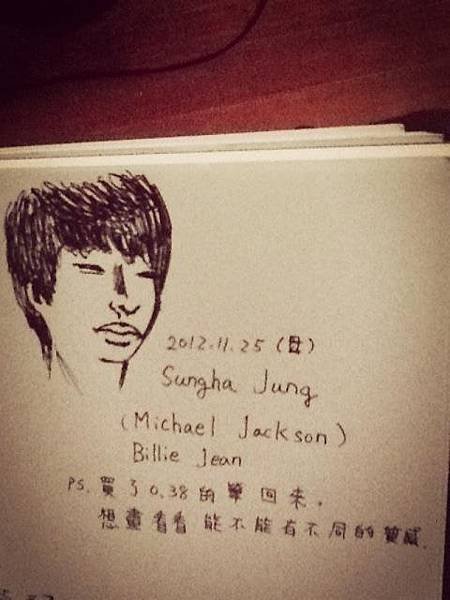 2012.11.25 (日)
Sungha Jung
(Michael Jackson)
Billie Jean
PS. 買了0.38的筆回來。
想畫看看能不能有不同的質感.